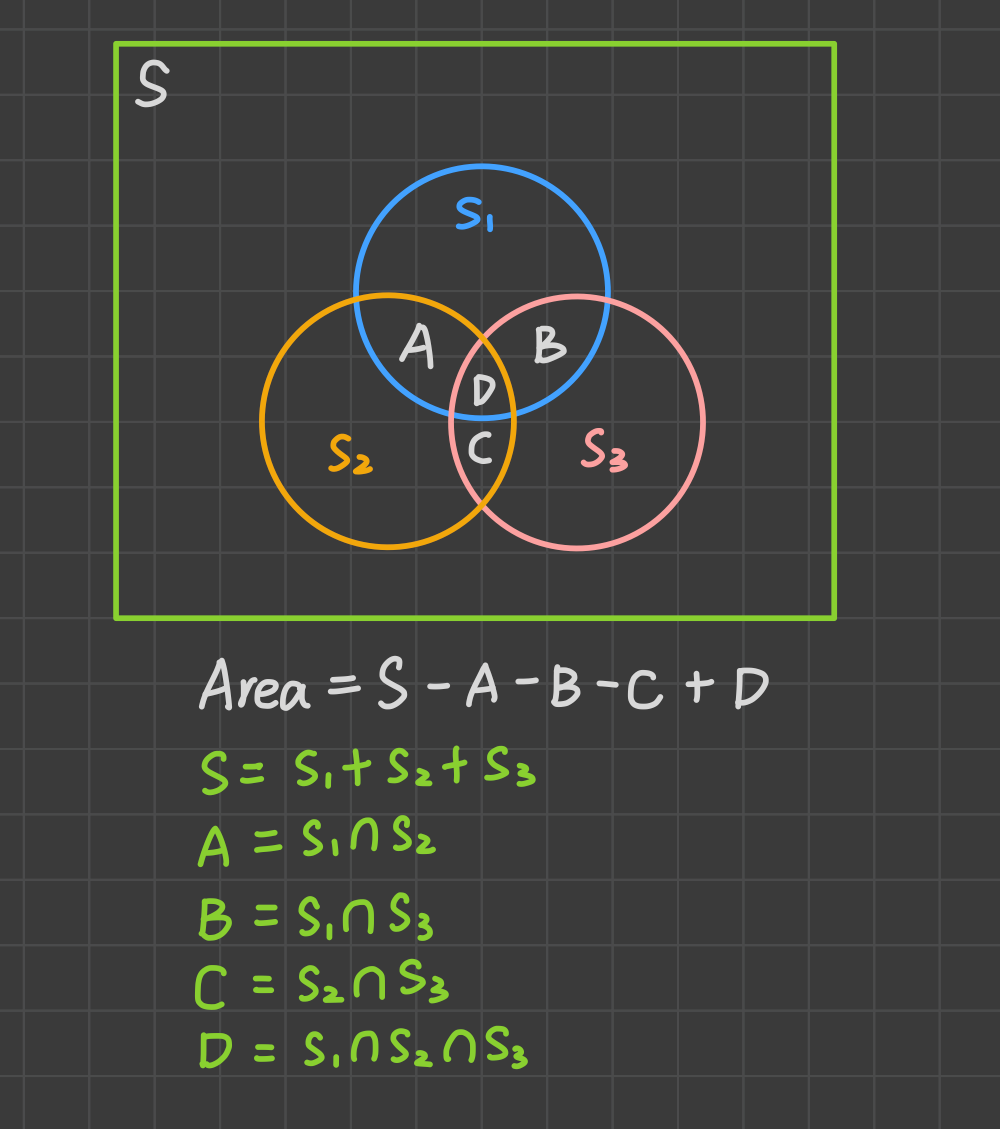 S
S₁
A
B
D
S₂
C
S₃
Area = S - A - B - C + D
S = S₁ + S₂ + S₃
A = S₁ ∩ S₂
B = S₁ ∩ S₃
C = S₂ ∩ S₃
D = S₁ ∩ S₂ ∩ S₃